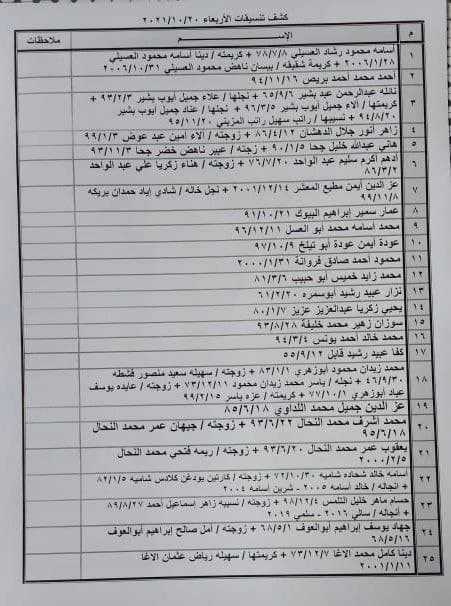 كشف تنسيقات الأربعاء ٢٠٢١/١٠/٢٠
م الإســــم ملاحظات
١ أسامه محمود رشاد العسيلي ٧٨/٧/٨ + كريمته / دينا أسامه محمود العسيلي
٢٠٠٦/١/٢٨ + كريمة شقيقه / بيسان ناهض محمود العسيلي ٢٠٠٦/١٠/٣١
٢ أحمد محمد أحمد بريص ٩٤/١١/١٦
٣ نائله عبدالرحمن عبد بشير ٦٥/٩/٦ + نجلها / علاء جميل أيوب بشير ٩٣/٢/٣ +
كريمتها / ألاء جميل أيوب بشير ٩٦/٣/٥ + نجلها / عناد جميل أيوب بشير
٩٤/٨/٢٠ + نسيبها / راتب سهيل راتب المزيني ٩٥/١١/٢٠
٤ زاهر أنور جلال الدهشان ٨٦/٤/١٢ + زوجته / ألاء امين عبد عوض ٩٩/١/٣
٥ هاني عبدالله خليل جحا ٩٠/١/٥ + زجته / عبير ناهض خضر جحا ٩٣/١١/٣
٦ أدهم أكرم سليم عبد الواحد ٧٦/٧/٢٠ + زوجته / هناء زكريا علي عبد الواحد
٨٦/٣/٢
٧ عز الدين أيمن مطيع المعشر ٢٠٠١/١٢/١٤ + نجل خاله / شادي إياد حمدان بريكه
٩٩/١١/٨
٨ عمار سمير إبراهيم البيوك ٩١/١٠/٢١
٩ محمد أسامه محمد أبو العسل ٩٦/١٢/١١
١٠ عودة أيمن عودة أبو تيلخ ٩٧/١٠/٩
١١ محمود أحمد صادق فروانة ٢٠٠٠/١/٣١
١٢ محمد زايد خميس أبو حبيب ٨١/٣/٦
١٣ نزار عبيد رشيد أبوسمره ٦١/٢/٢٠
١٤ يحيي زكريا عبدالعزيز عزيز ٨٠/١/٧
١٥ سوزان زهير محمد خليفة ٩٣/٨/٢٨
١٦ محمد خالد أحمد يونس ٩٤/٣/٤
١٧ كفا عبيد رشيد قابل ٥٥/٩/١٢
١٨ محمد زيدان محمود أبوزهري ٨٣/١/١ + زوجته / سهيله سعيد منصور قشطه
٤٦/٩/٣٠ + نجله / ياسر محمد زيدان محمود ٧٣/١٢/١١ + زوجته / عايده يوسف
عياد أبوزهري ٧٧/١٠/١ + كريمته / عزه ياسر ٩٩/٢/١٥
١٩ عز الدين جميل محمد اللداوي ٨٥/٦/١٨
٢٠ محمد أشرف محمد النحال ٩٣/٦/٢٢ + زوجته / جيهان عمر محمد النحال
٩٥/٦/١٨
٢١ يعقوب عمر محمد النحال ٩٣/٦/٢٠ + زوجته / ريمه فتحي محمد النحال
٢٠٠٠/٢/٥
٢٢ أسامه خالد شحاده شاميه ٧٢/١٠/٣٠ + زوجته / كارتين بودغن كلادس شاميه ٨٢/١/٥
+ أنجاله / خالد أسامه ٢٠٠٥ - شرين أسامه ٢٠٠٤
٢٣ حسام ماهر خليل التلمس ٩٨/١٢/٤ + زوجته / نسيبه زاهر إسماعيل أحمد ٨٩/٨/٢٧
+ أنجاله / سالي ٢٠١٦ - سلمى ٢٠١٩
٢٤ جهاد يوسف إبراهيم أبوالعوف ٦٨/٥/١ + زوجته / أمل صالح إبراهيم أبوالعوف
٦٨/٥/١٦
٢٥ دينا كامل محمد الاغا ٧٣/١٢/٧ + كريمتها / سهيله رياض عثمان الاغا
٢٠٠١/١/١١